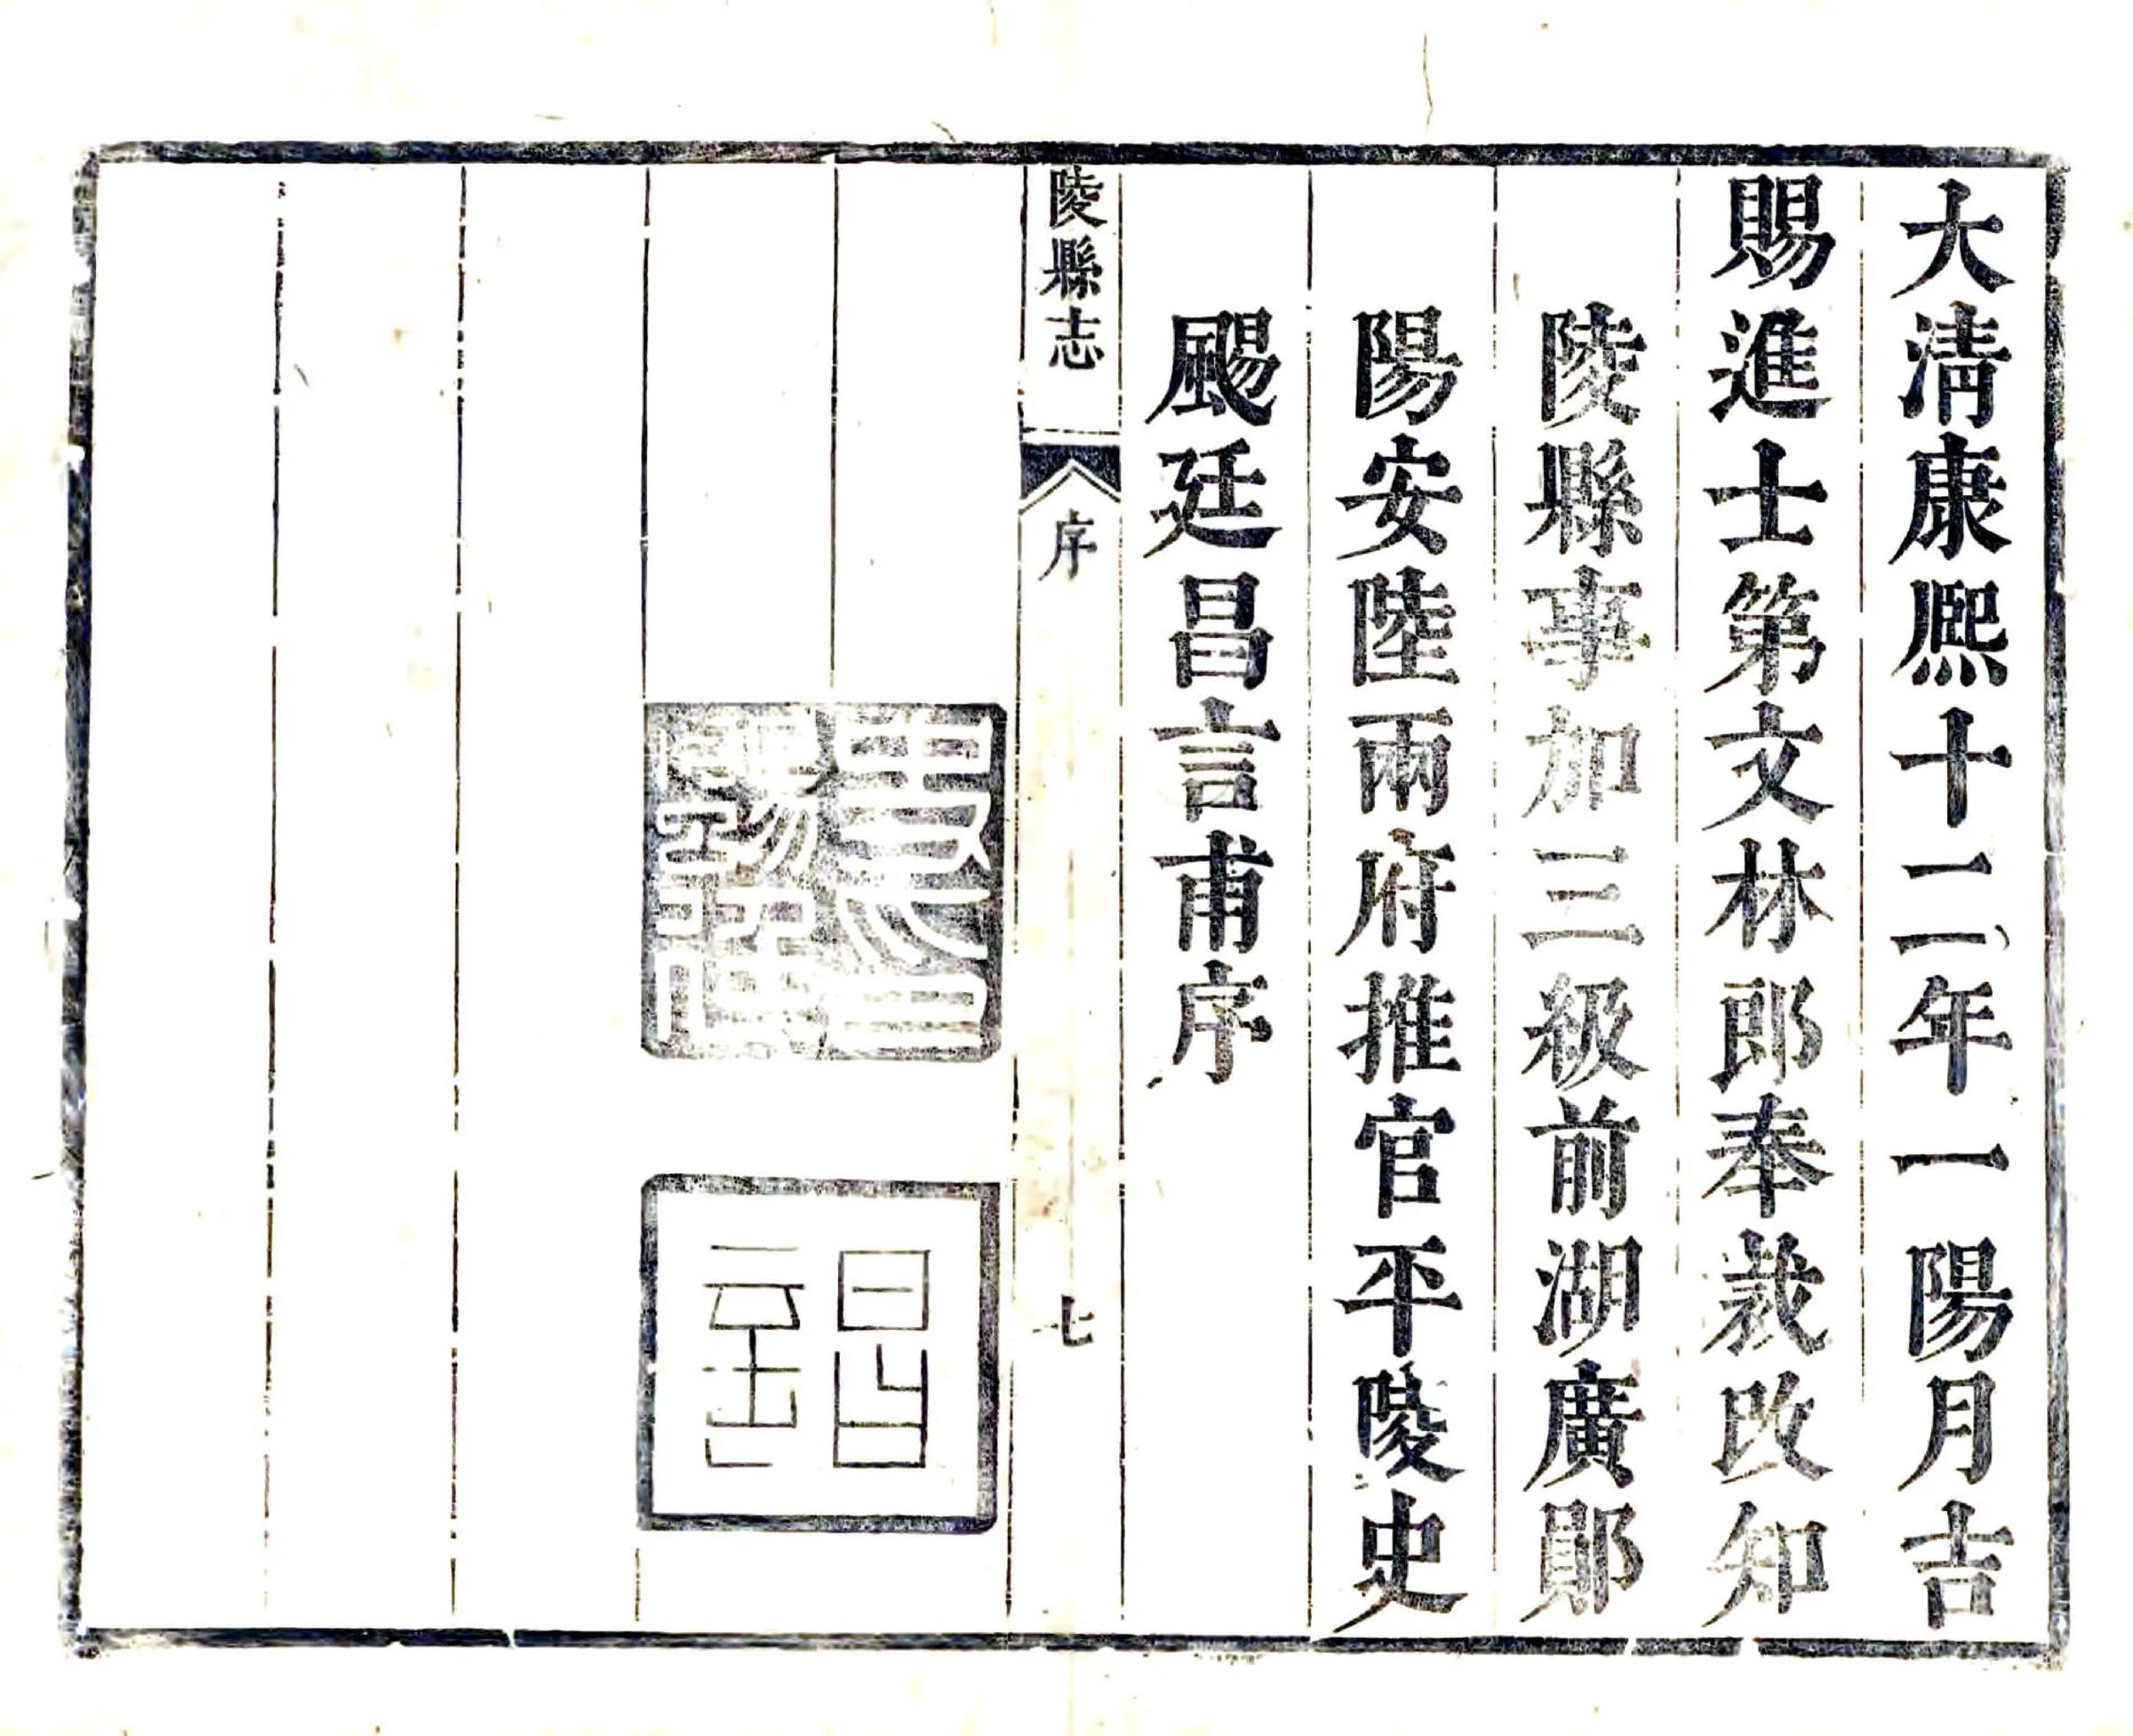 大清康熙十二年一陽月吉
賜進士第文林郎奉裁改知
陵縣事加三級前湖廣鄖
陽安陸兩府推官平陵史
颺廷昌言甫序
陵縣志 序 七